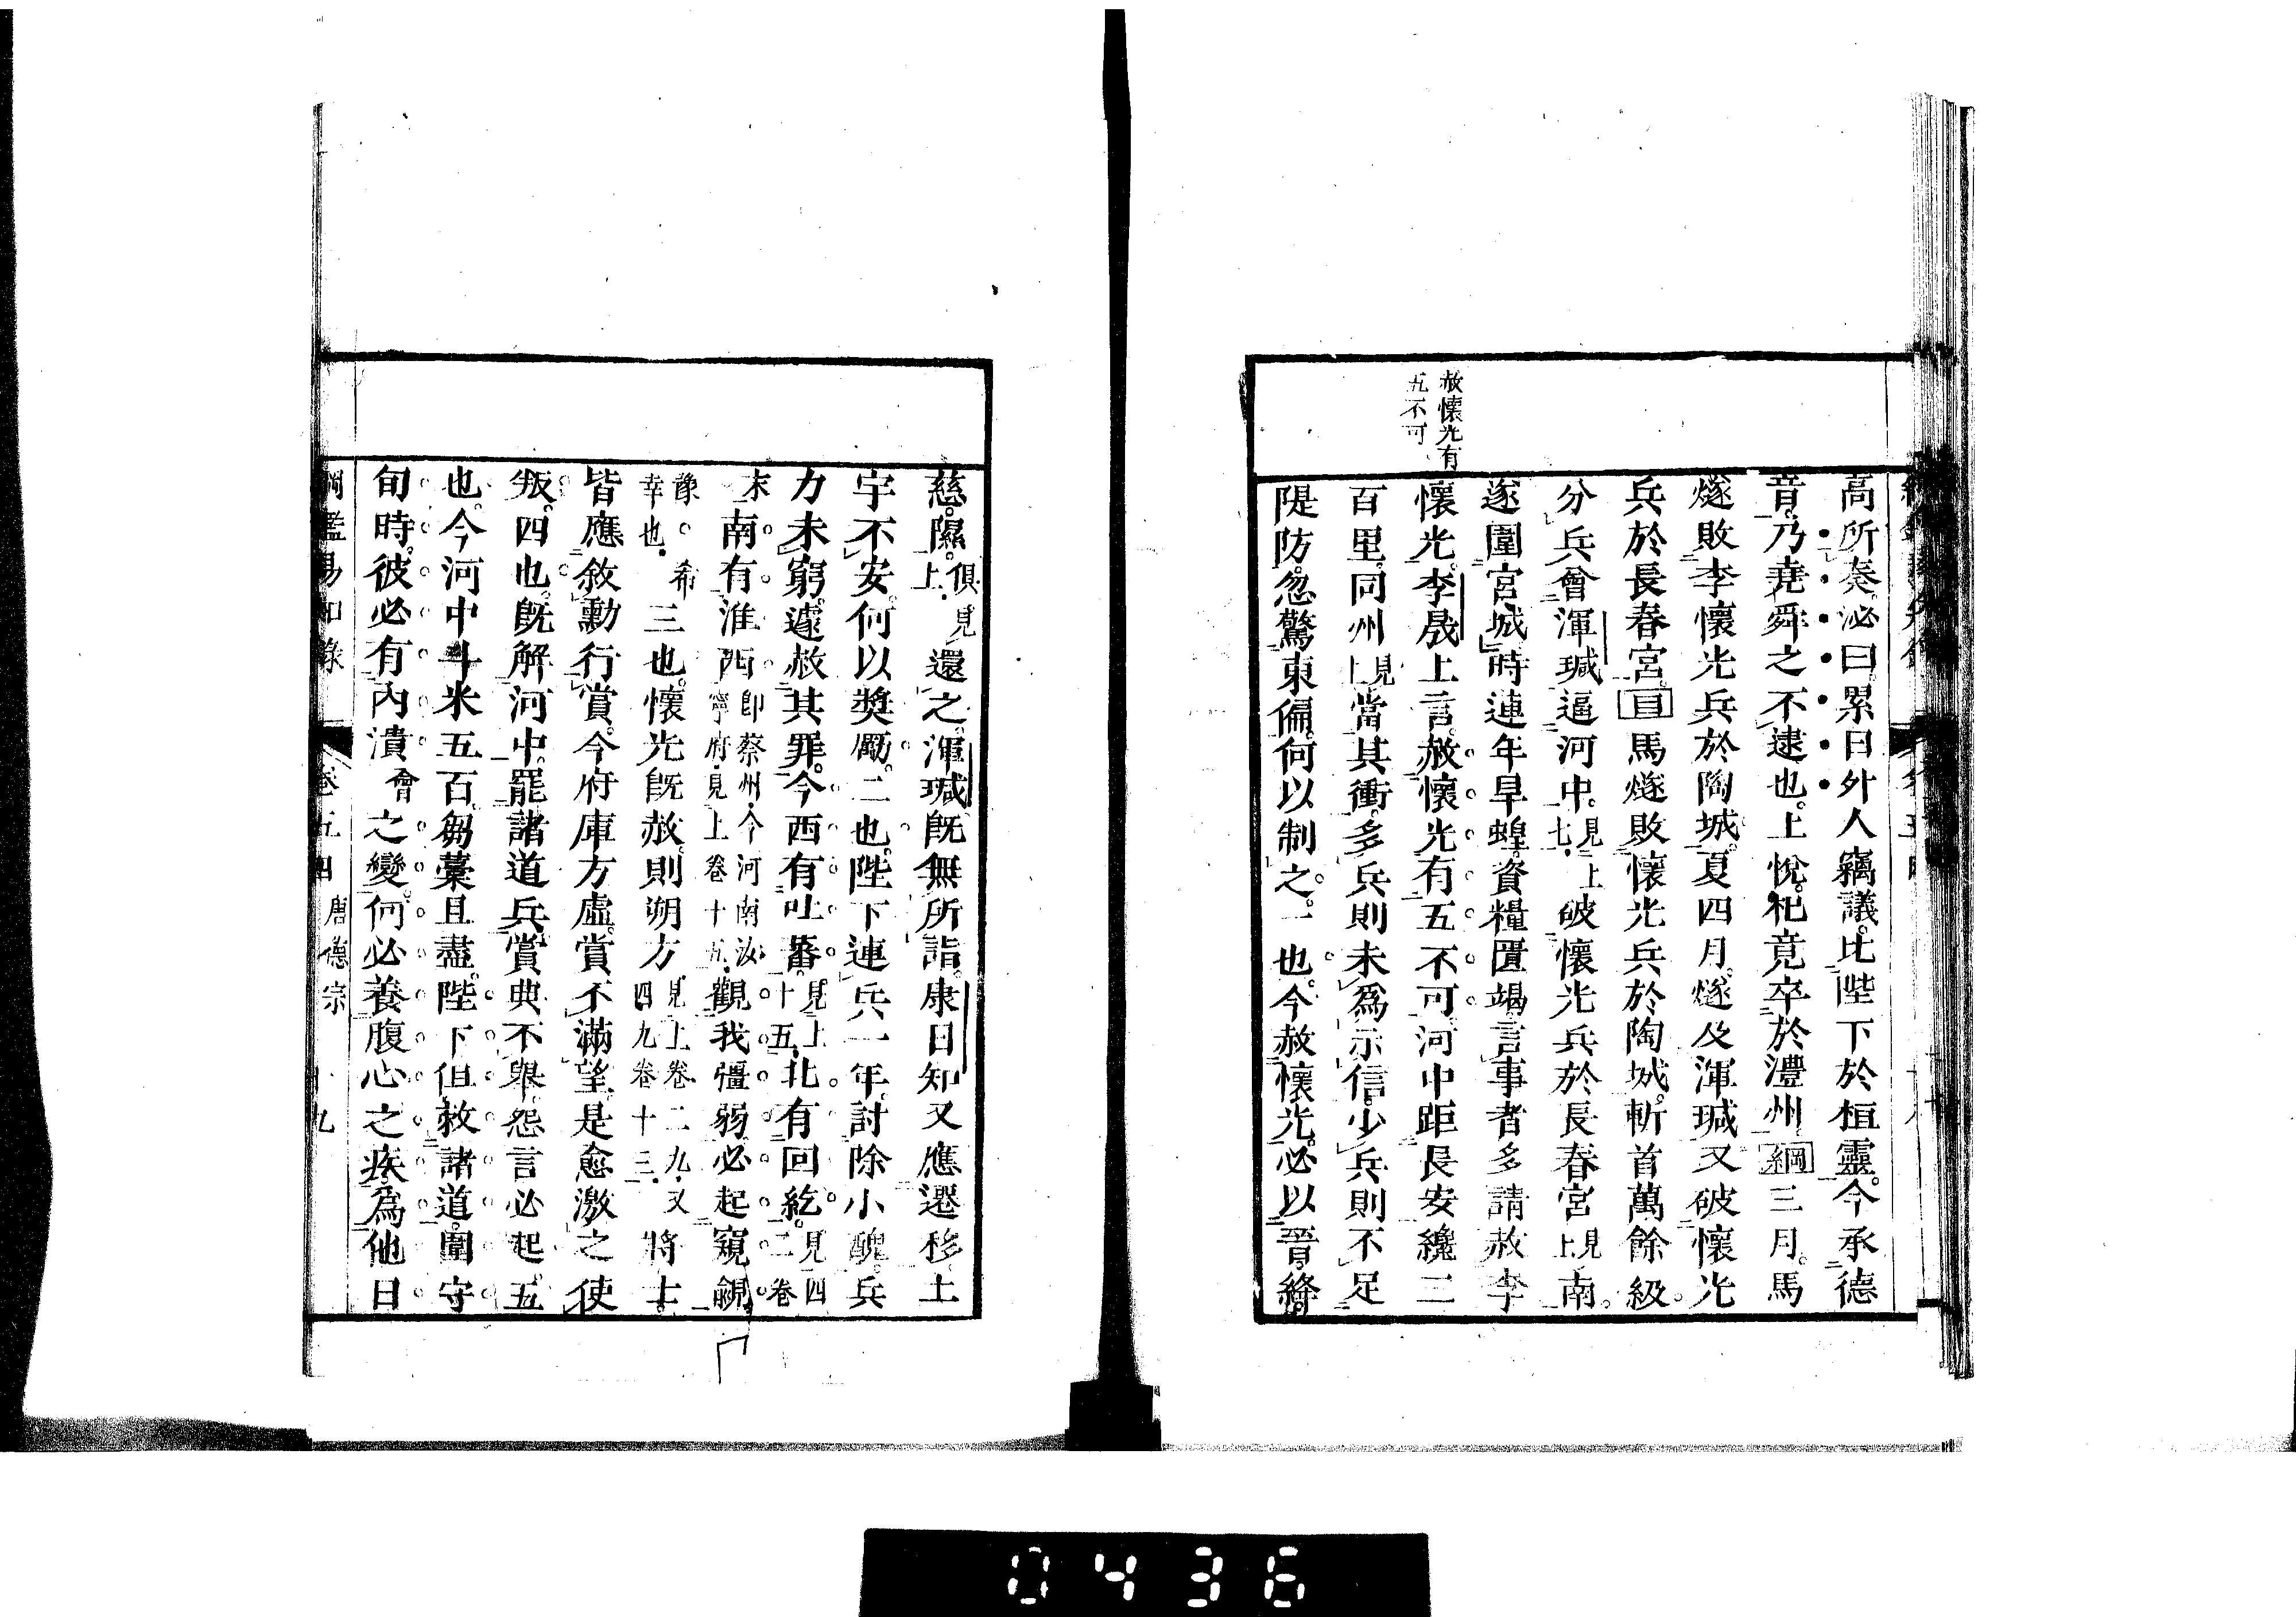 赦懷光有
五不可
高所奏泌曰累日外人竊議比陛下於桓靈今承德
音乃堯舜之不逮也上悅杞竟卒於澧州綱三月馬
燧敗李懷光兵於陶城夏四月燧及渾瑊又破懷光
兵於長春宮目馬燧敗懷光兵於陶城斬首萬餘級
分兵會渾瑊逼河中見上七破懷光兵於長春宮見上南
遂圍宮城時連年旱蝗資糧匱竭言事者多請赦李
懷光李晟上言赦懷光有五不可河中距長安纔三
百里同州見上當其衝多兵則未爲示信少兵則不足
隄防忽驚東偏何以制之一也今赦懷光必以晉絳
慈隰俱見上還之渾瑊既無所詣康日知又應遷移土
宇不安何以奬勵二也陛下連兵一年討除小醜兵
力未窮遽赦其罪今西有吐蕃見上十五北有回紇見四二卷
末南有淮西卽蔡州今河南汝寧府見上卷十五觀我彊弱必起窺覦
豫希幸也三也懷光既赦則朔方見上卷二九又四九卷十三將士
皆應敘勳行賞今府庫方虛賞不滿望是愈激之使
叛四也既解河中罷諸道兵賞典不舉怨言必起五
也今河中斗米五百芻藁且盡陛下但敕諸道圍守
旬時彼必有內潰會之變何必養腹心之疾爲他日
綱鑑易知錄 卷五四 唐德宗 十九